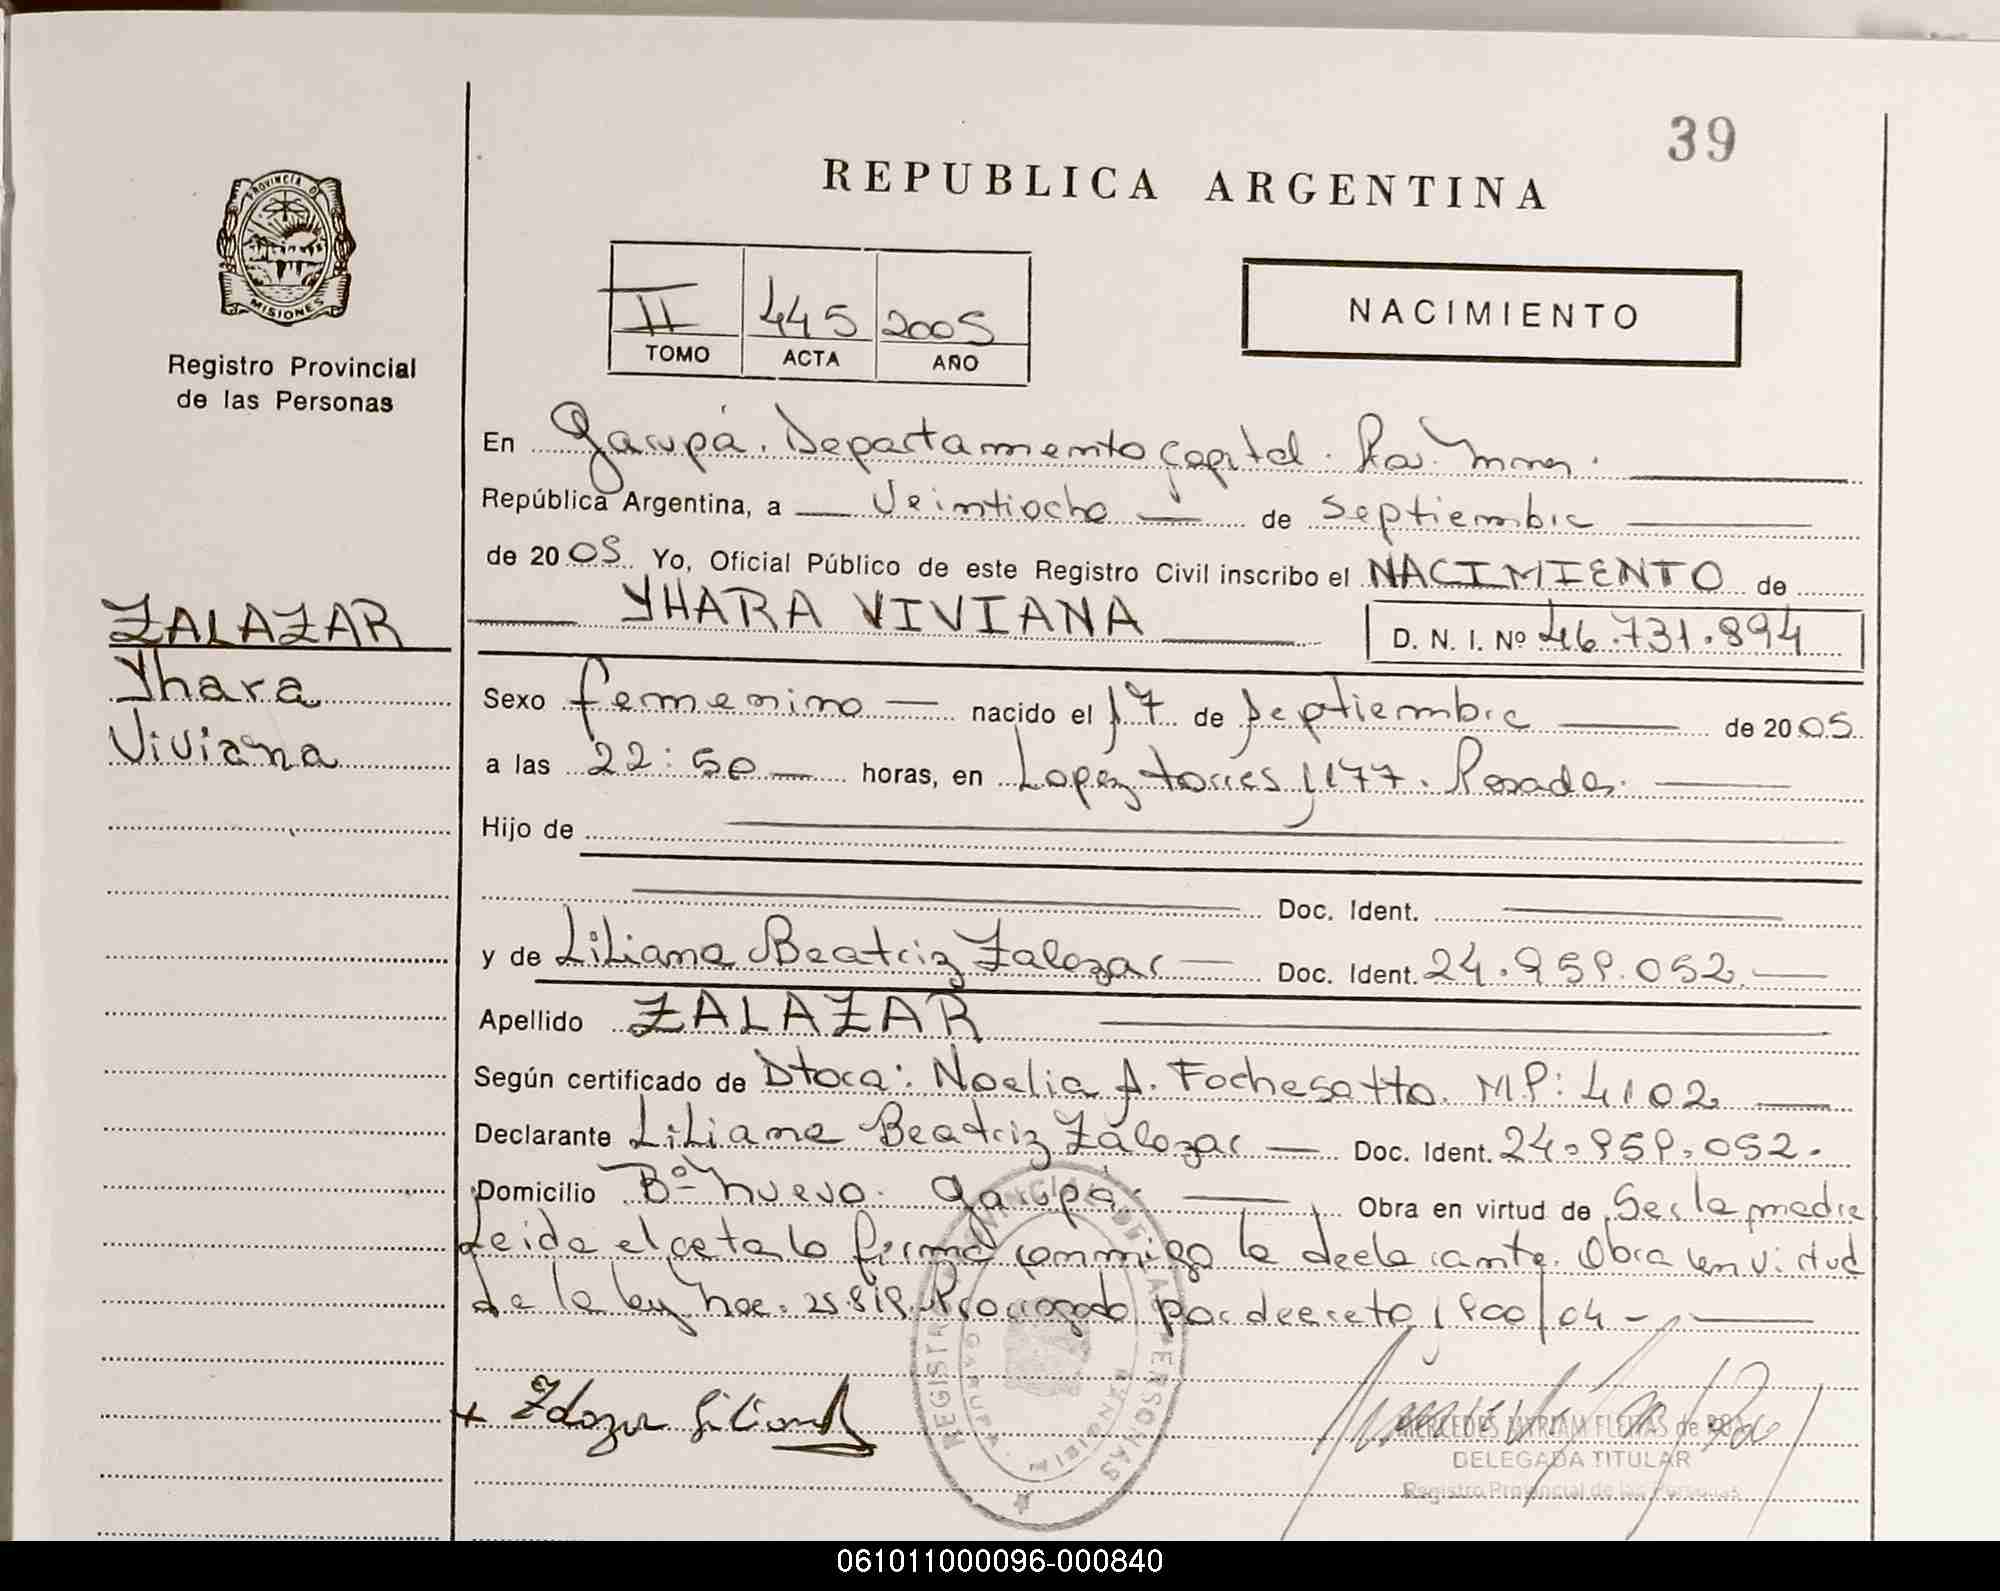 39
REPUBLICA ARGENTINA
PROVINCIA D
MISIONES
Registro Provincial
de las Personas
II 445 2005
TOMO ACTA AÑO
NACIMIENTO
En Garupá. Departamento Capital.
República Argentina, a — Veintiocho — de Septiembre —
de 2005 Yo, Oficial Público de este Registro Civil inscribo el NACIMIENTO de
— YHARA VIVIANA — D. N. I. Nº 46.731.894
ZALAZAR
Yhara
Viviana
Sexo femenino — nacido el 17 de Septiembre — de 2005
a las 22:50 — horas, en Lopez torres 1177. Posadas. —
Hijo de —
— Doc. Ident. —
y de Liliana Beatriz Zalazar — Doc. Ident. 24.959.052. —
Apellido ZALAZAR —
Según certificado de Dtora: Noelia A. Fochesatto. MP: 4102 —
Declarante Liliana Beatriz Zalazar — Doc. Ident. 24.959.052.
Domicilio Bº Nuevo. Garupá. — Obra en virtud de Ser la madre
Leida el acta la firma conmigo la declarante. Obra en virtud
de la ley Nac. 25.819. Prorrogado por decreto 1900/04 - —
+ Zalazar Liliana B
REGISTRO PROVINCIAL DE LAS PERSONAS
GARUPA - MISIONES
MERCEDES MYRIAM FLEITAS de
DELEGADA TITULAR
Registro Provincial de las Personas
061011000096-000840